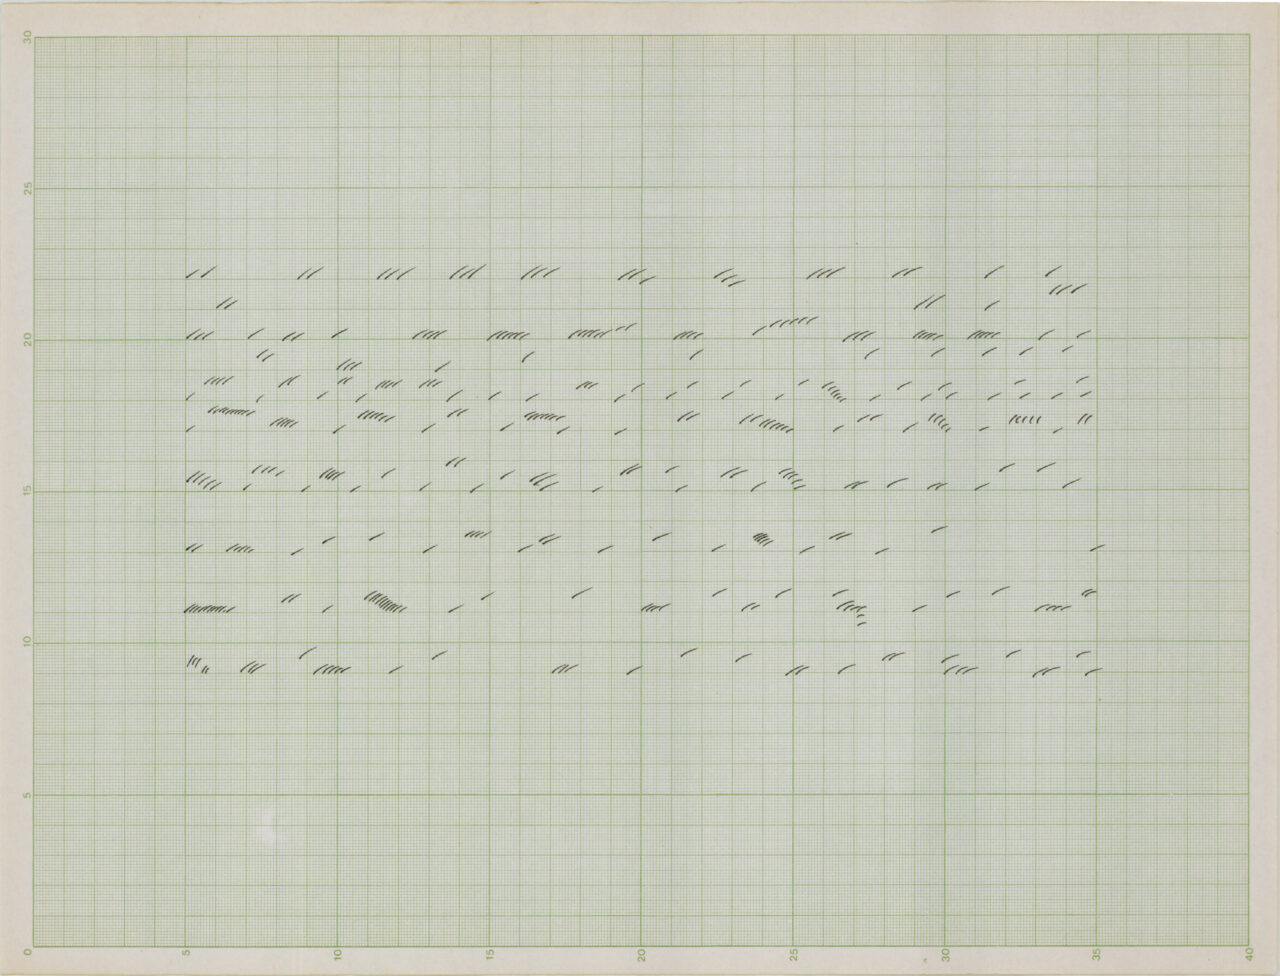 30
25
20
15
10
5
0
5
10
15
20
25
30
35
40